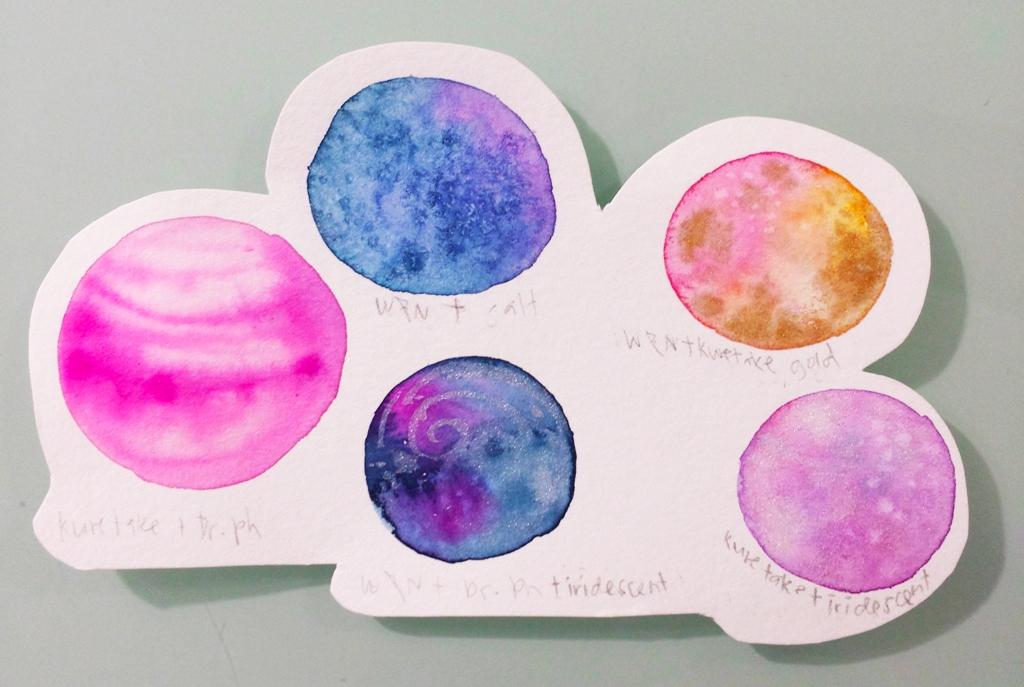 W&N + salt
W&N + kuretake gold
kuretake + Dr. ph
W&N + Dr. Ph + iridescent
kuretake + iridescent